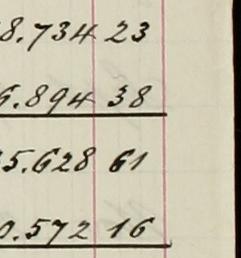 8.734 23
6.894 38
5.628 61
0.572 16